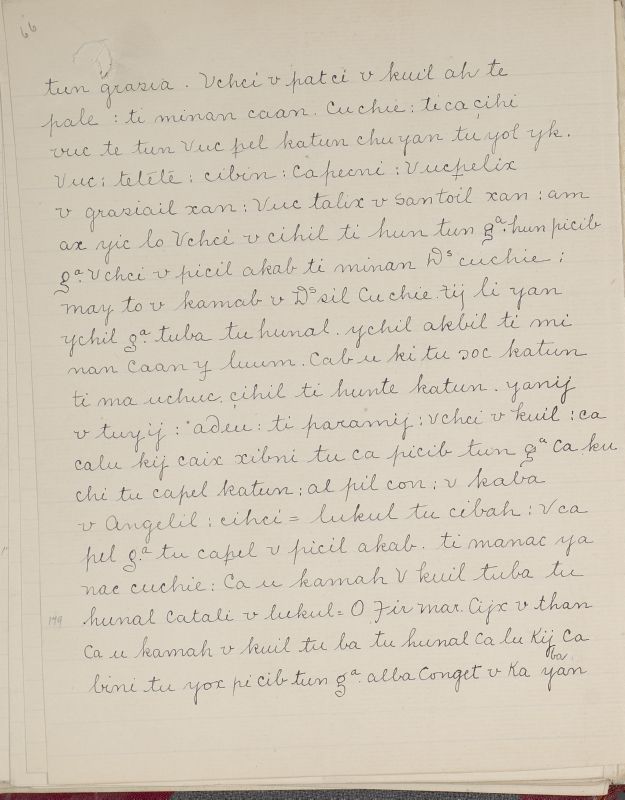 66
tun grasia . Vchci v patci v kuil ah te
pale : ti minan caan . Cuchie : ti ca çihi
vuc te tun Vuc pel katun chuyan tu yol yk .
Vuc : telele : cibin : Capecni : Vucpelix
v grasiail xan : Vuc talix v santoil xan : am
ax yic lo Vchci v cihil ti hun tun gª : hun picib
gª . Vchci v picil akab ti minan Ds cuchie :
may to v kamab v Ds sil Cuchie . tij li yan
ychil gª . tuba tu hunal . ychil akbil ti mi
nan Caan y luum . Cab u ki tu ɔoc katun
ti ma uchuc . çihil ti hunte katun . yanij
v tuyij : adeu : ti paramij : Vchci v kuil : ca
calu kij caix xibni tu ca picib tun gª Ca ku
chi tu capel katun : al pil con : v kaba
v Angelil : cihci = lukul tu cibah : Vca
pel gª . tu capel v picil akab . ti manac ya
nac cuchie : Ca u kamah V kuil tuba tu
149 hunal Catali v lukul = O Fir mar . Cijx v than
Ca u kamah v kuil tu ba tu hunal Ca lu Kij Ca
bini tu yox picib tun gª . alba Conget v Ka ba yan